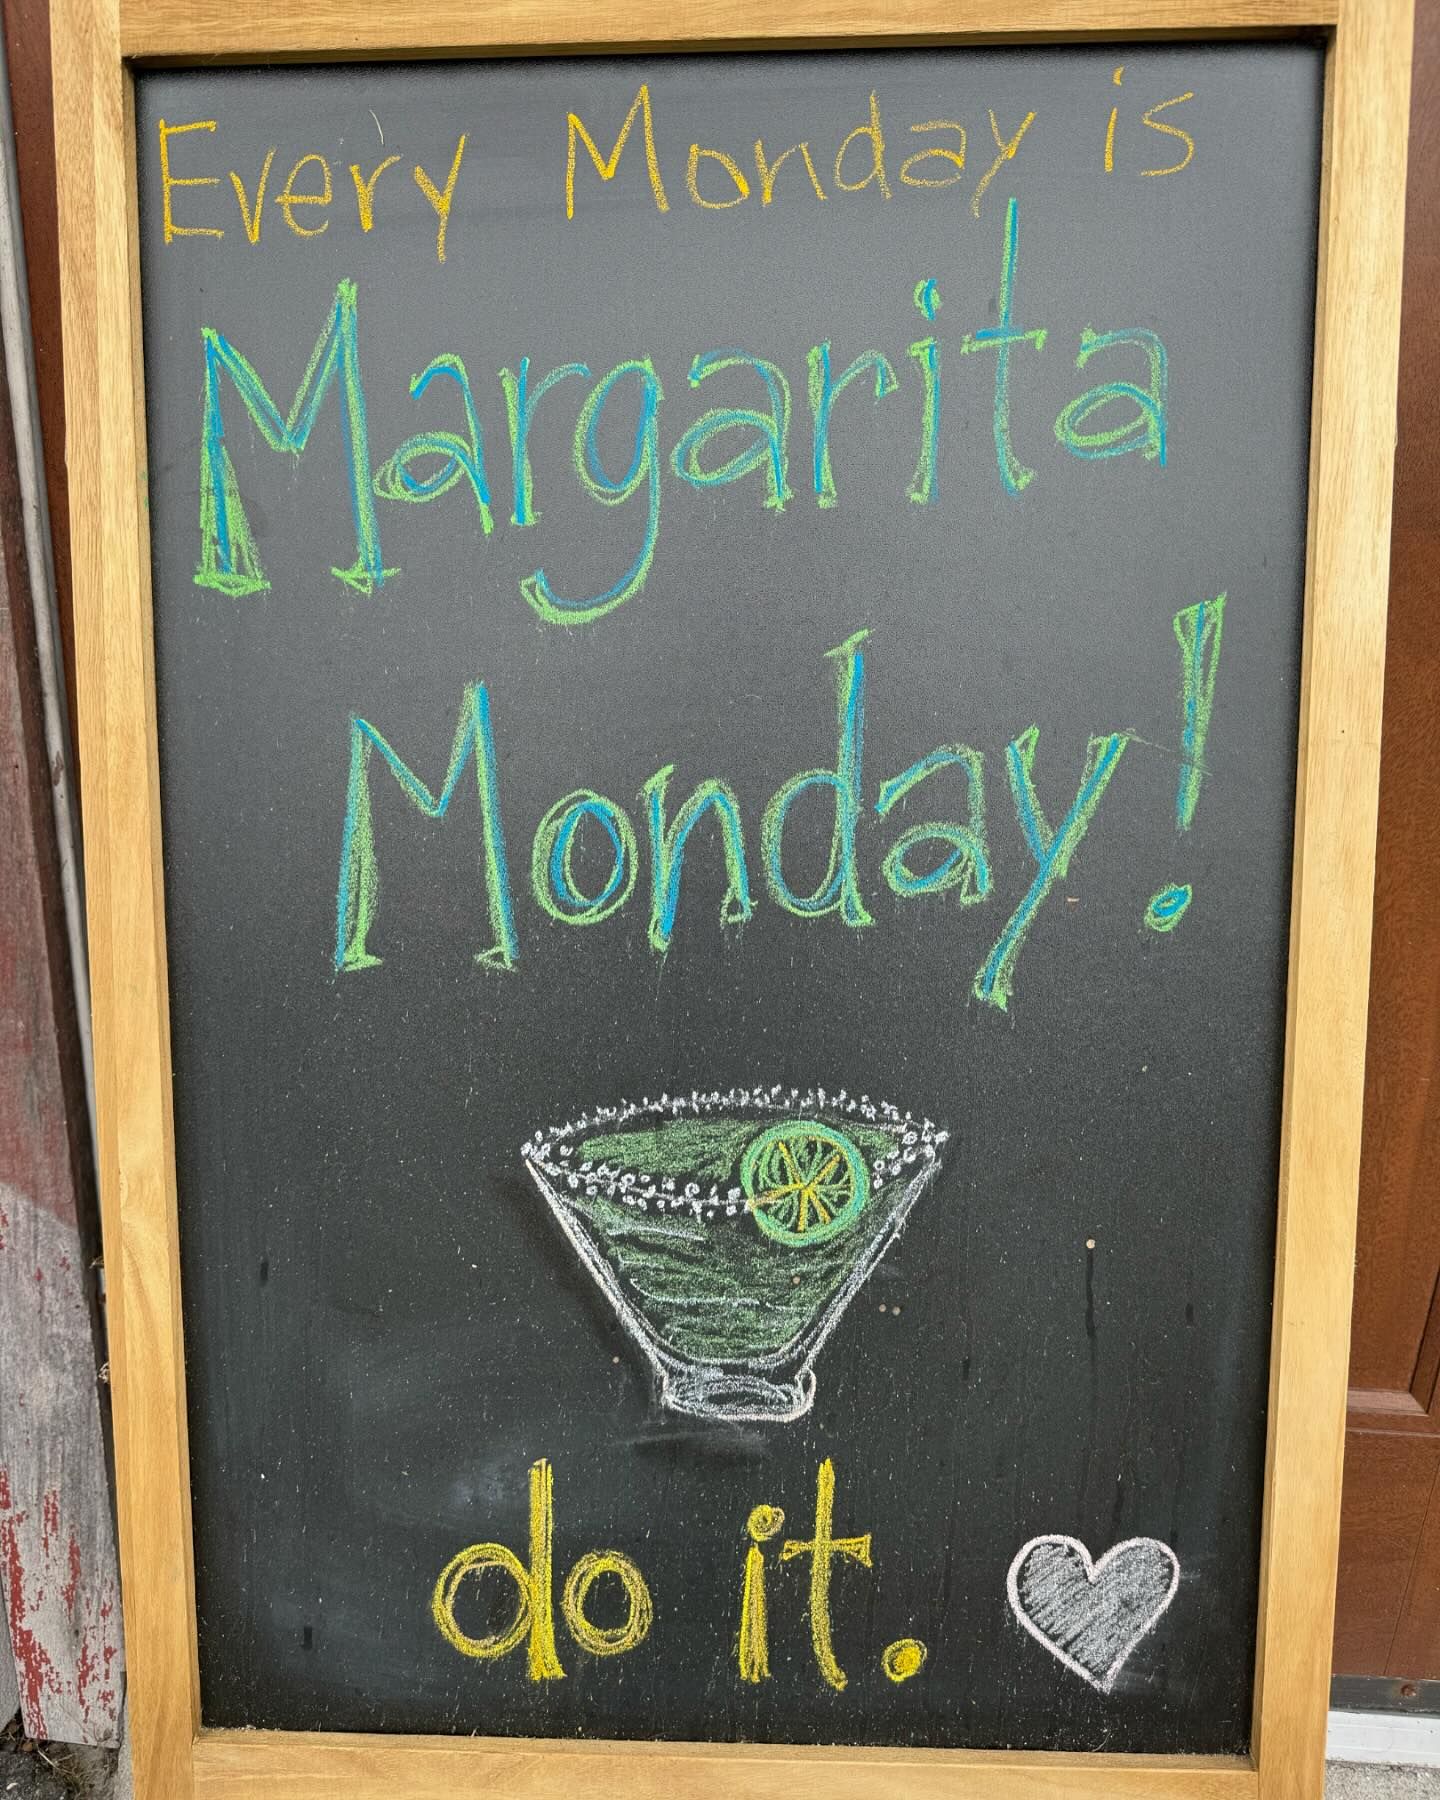 Every Monday is
Margarita
Monday!
do it.